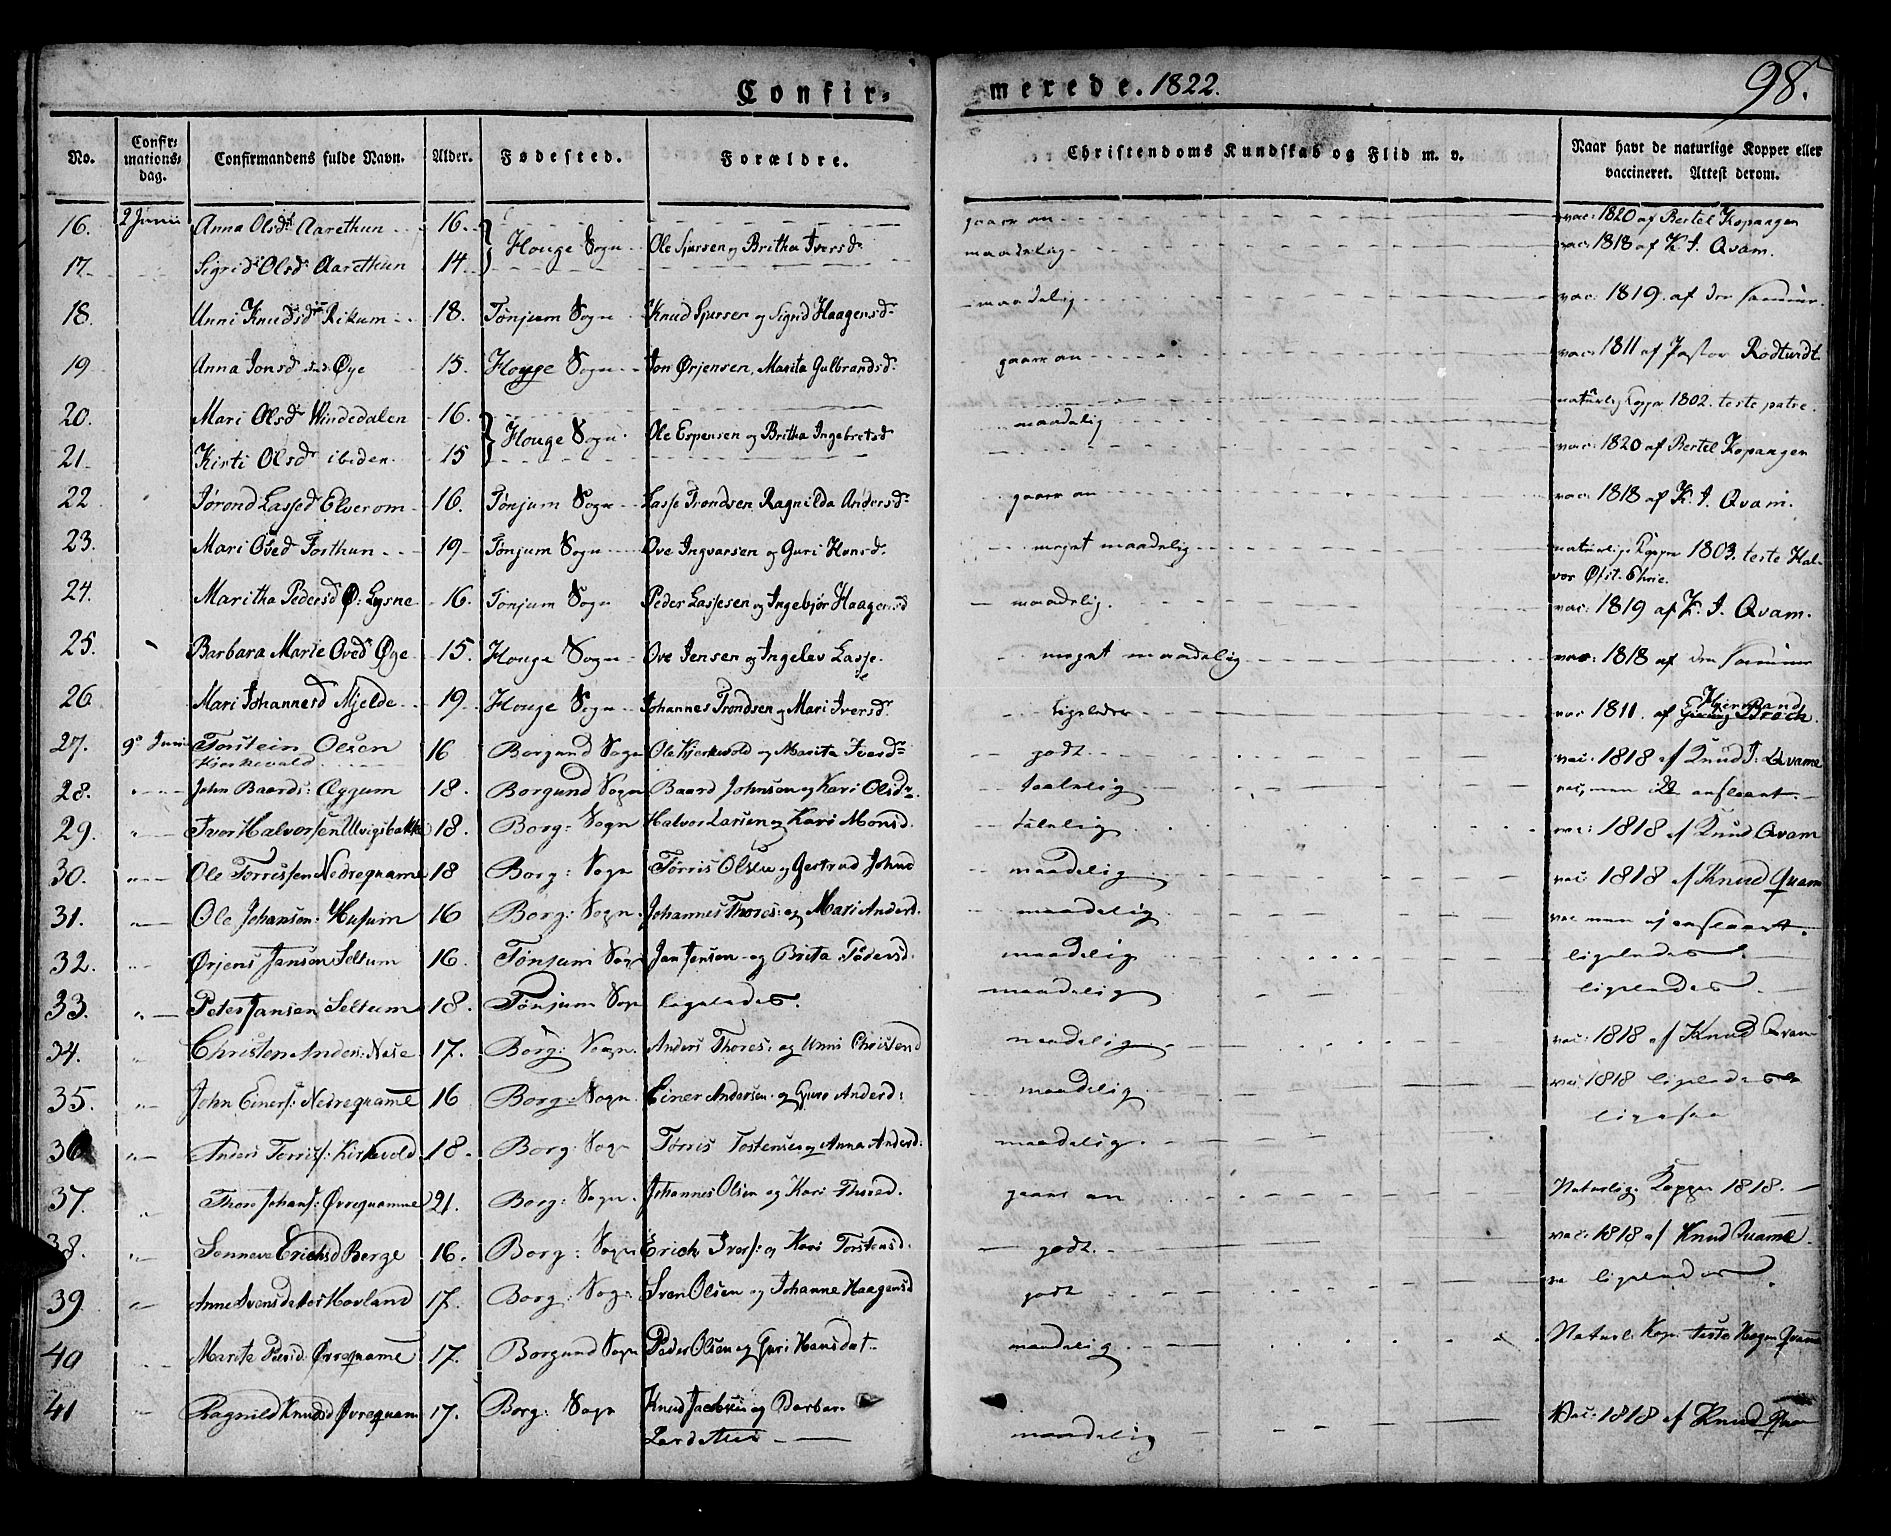 Confir-
merede. 1822.
98.
No.
Confir-
mations-
dag.
Confirmandens fulde Navn.
Alder.
Fødested.
Forældre.
Christendoms Kundskab og Flid m. v.
Naar havt de naturlige Kopper eller
vaccineret. Attest derom.
16. 2 Junii Anna Olsd Aarethun 16. Houge Sogn Ole Sjursen og Britha Iversd gaar an vac: 1820 af Bertel Kopangen
17. Sigrid Olsd Aarethun 14. maadelig vac: 1818 af K. I. Qvam.
18. Unni Knudsd Rikum 18. Tønjum Sogn Knud Sjursen og Sigrid Haagensd maadelig vac: 1819. af den samme.
19 Anna Jonsd Øye 15. Houge Sogn Jon Ørjensen, Marita Gulbrandsd gaar an vac: 1811 af Pastor
20. Mari Olsd Windedalen 16. Houge Sogn Ole Espensen og Britha Ingebretsd maadelig naturlig Kopper 1802. teste patre.
21 Kirti Olsd ibidem 15 vac: 1820 af Bertel Kopangen
22 Jørond Lassed Elserom 16. Tønjum Sogn Lasse Trondsen Ragnilda Andersd gaar an vac: 1818 af K. I. Qvam.
23. Mari Oved Torthun 19 Tønjum Sogn Ove Ingvarsen og Guri Hansd. meget maadelig naturlige Kopper 1803. teste Hal-
vor Øst. Ehrie.
24. Maritha Pedersd Ø: Lysne 16. Tønjum Sogn Peder Lassesen og Ingebjør Haagensd maadelig. vac: 1819 af K. I. Qvam.
25. Barbara Marie Oved Øye 15. Houge Sogn Ove Jensen og Ingelev Lasse. meget maadelig vac: 1818 af den samme
26 Mari Johannesd Mjelde 19 Houge Sogn Johannes Trondsen og Mari Iversd. ligeledes vac 1811. af Broch.
27. 9 Juni Torstein Olsen 16 Borgund Sogn Ole Kjerkevold og Marita Iversd godt vac: 1818 af Knud I: Qvame
Kjerkevald
28. John Baards: Øggum 18. Borgund Sogn Baard Johnson og Kari Olsdr. taalelig vac, men
29. Iver Halvorsen Utvigsbakke 18. Borg: Sogn Halvor Larsen og Kari Monsd. talelig vac: 1818 af Knud Qvam
30. Ole Torrissen Nedrequame 18 Borg: Sogn Torris Olsen og Gertrud Johnd maadelig vac: 1818 af Knud Quam
31. Ole Johansen: Husum 16 Borg: Sogn. Johannes Thores: og Mari Anders. maadelig vac men
32. Ørjens Jansen Seltum 16. Tønjum Sogn Jan Jensen og Brita Pedersd. maadelig ligeledes
33. Peter Jansen Seltum 18. Tønjum Sogn ligeledes. maadelig ligeledes
34. Christen Anders: Nese 17. Borg: Sogn. Anders Thores: og Unni Christend maadelig vac: 1818 af Knud Qvam
35. John Einers: Nedrequame 16 Borg: Sogn. Einer Andersen og Guro Anderd: maadelig vac: 1818 ligeledes
36 Anders Torris: Kirkevold 18. Borg: Sogn Torris Tostensen og Anna Andersd: maadelig. ligesaa
37. Thore Johans: Øvrequamme 21. Borg: Sogn. Johannes Olsen og Kari Thored. gaar an Naturlige Kopper 1818.
38. Sønneve Erichsd Berge 16. Borg: Sogn Erich Ivers: og Kari Torstensd. godt. vac: 1818 af Knud Quame
39 Anne Svensdater Hovland 17. Borg: Sogn Sven Olsen og Johanne Haagensd godt ligeledes
40 Marita Pedersd: Øvrequame 17. Borgund Sogn Peder Olsen og Guri Hansdat maadelig Naturl: Kop: teste Hagen Qvame
41 Ragnild Knudsd Øvrequam 17. Borg: Sogn Knud Jacobsen og Barbar maadelig Vac: 1818 af Knud Qva
Larsdatter